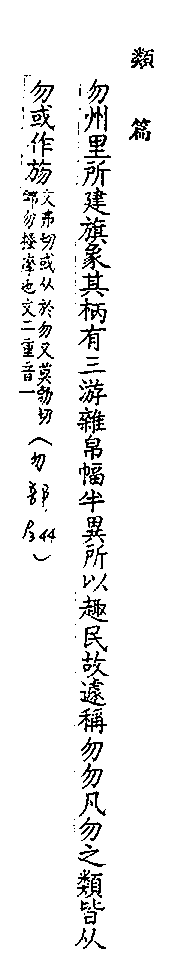 類篇
勿州里所建旗象其柄有三游雜帛幅半異所以趣民故遽稱勿勿凡勿之類皆从
勿或作𣃦文弗切或从㫃勿又莫勃切
邲勿摩也文二重音一
(勿部，44)